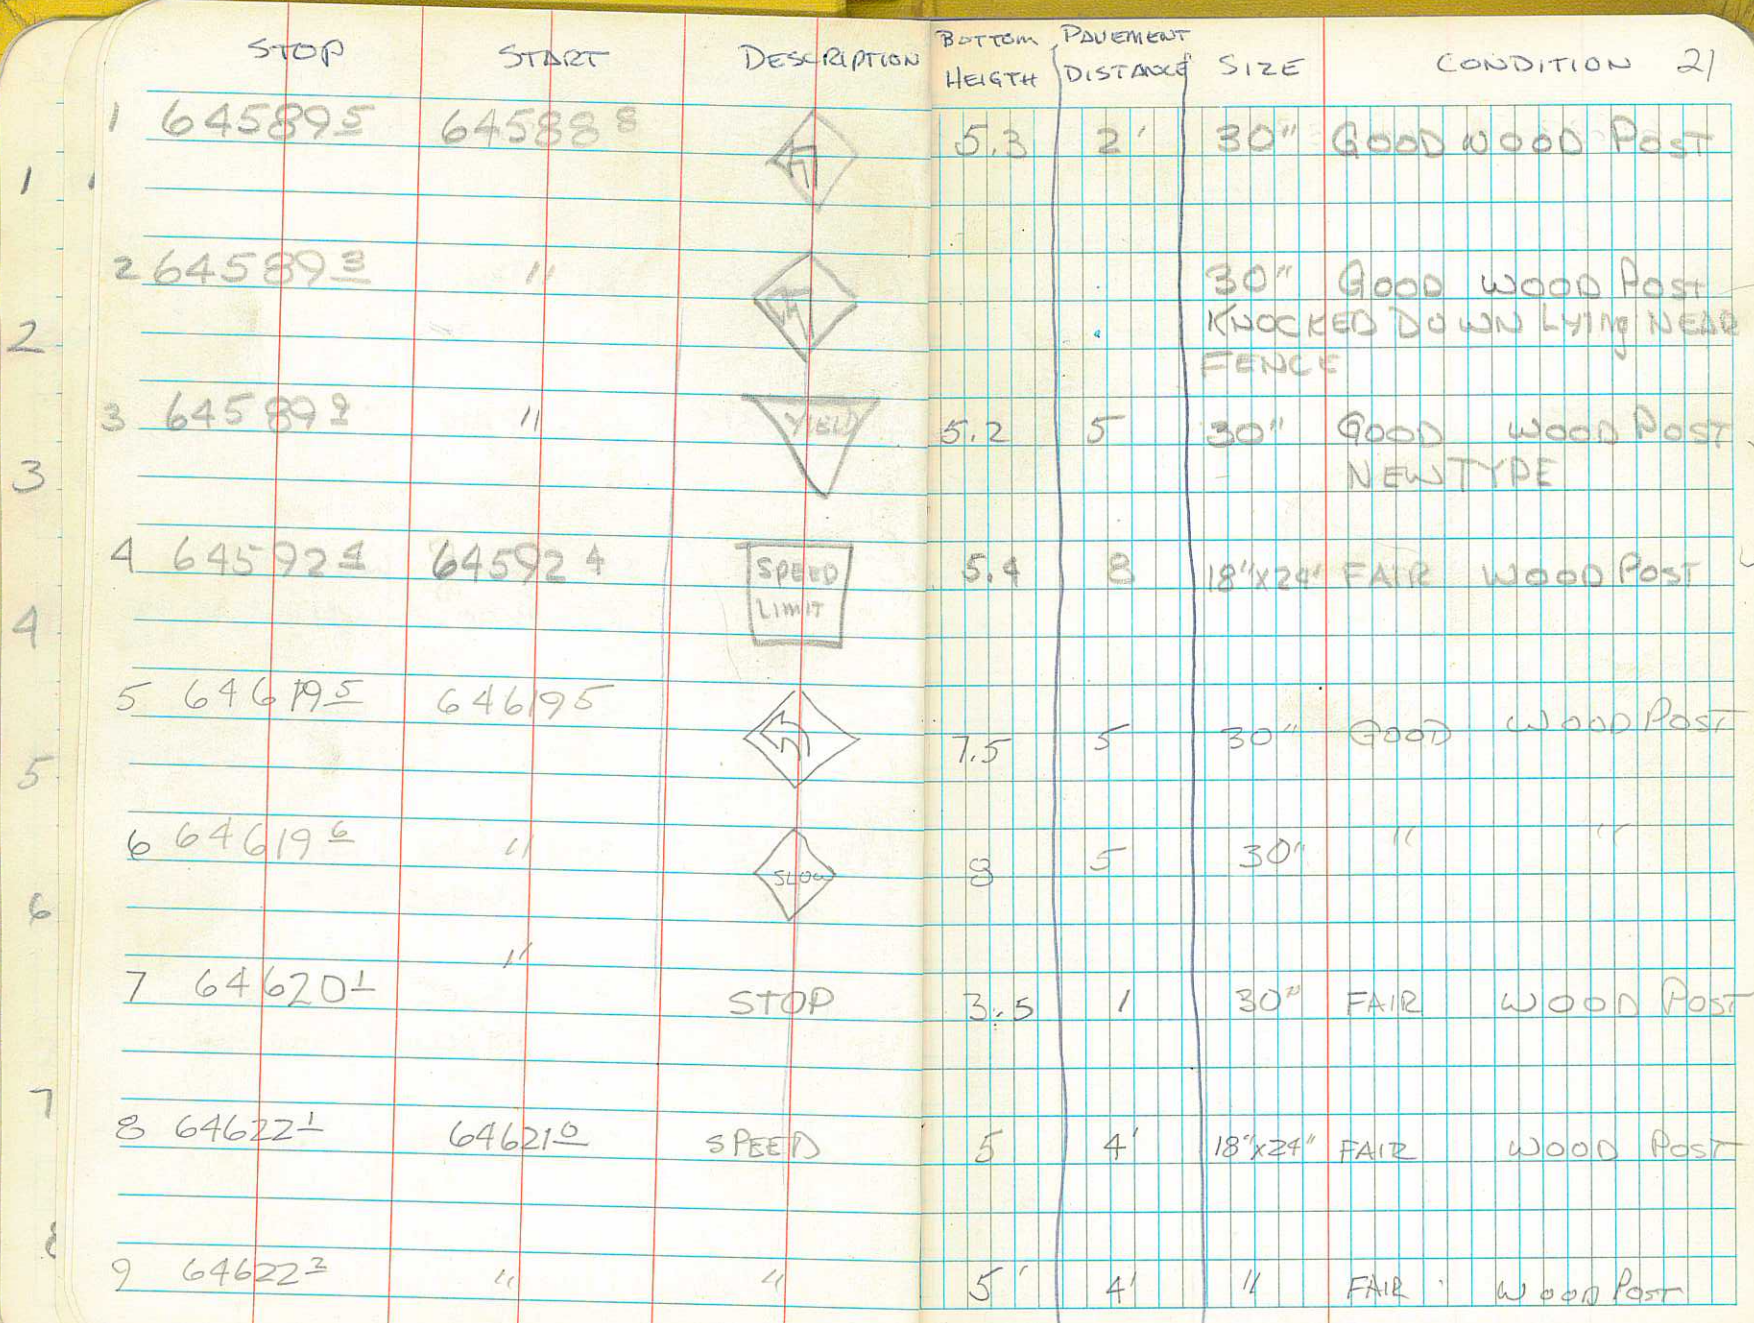 STOP START DESCRIPTION BOTTOM HEIGTH PAVEMENT DISTANCE SIZE CONDITION 21
1 645895 645888 5.3 2' 30" GOOD WOOD POST
1
2 645893 " 30" GOOD WOOD POST
KNOCKED DOWN LYING NEAR
2
FENCE
3 645899 " YIELD 5.2 5 30" GOOD WOOD POST
NEW TYPE
3
4 645924 645924 SPEED 5.4 8 18"x24" FAIR WOOD POST
LIMIT
4
5 646195 646195 7.5 5 30" GOOD WOOD POST
5
6 646196 " SLOW 8 5 30" " "
6
"
7 646201 STOP 3.5 1 30" FAIR WOOD POST
7
8 646221 646210 SPEED 5 4' 18"x24" FAIR WOOD POST
8
9 " " 5' 4' " FAIR WOOD POST